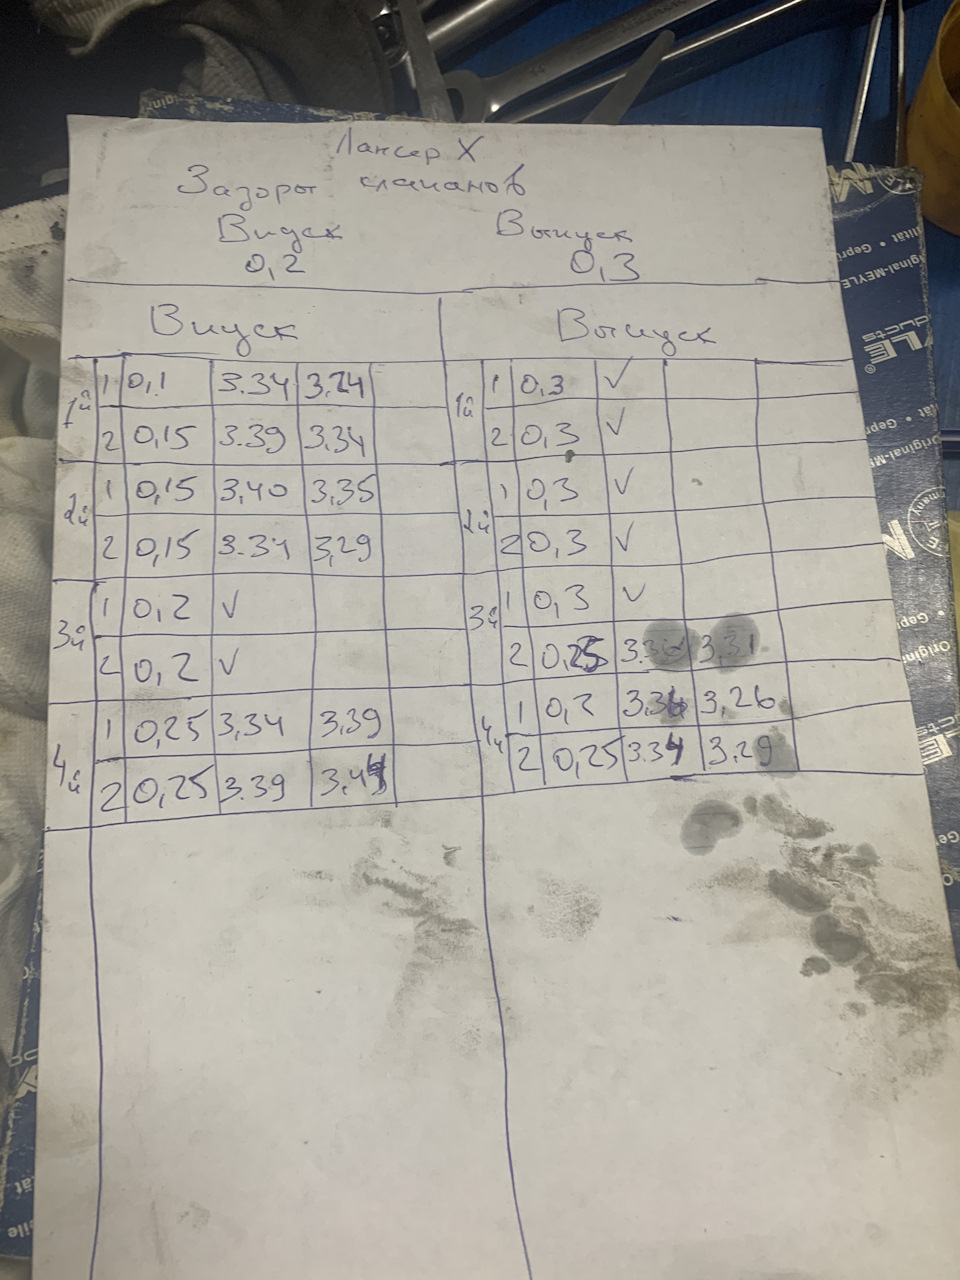 Лансер X
Зазоры клапанов
Впуск Выпуск
0,2 0,3
Впуск Выпуск
1й 1 0,1 3.34 3,24 1й 1 0,3 ✓
2 0,15 3.39 3,34 2 0,3 ✓
2й 1 0,15 3,40 3,35 2й 1 0,3 ✓
2 0,15 3.34 3,29 2 0,3 ✓
3й 1 0,2 ✓ 3й 1 0,3 ✓
2 0,2 ✓ 2 0,25 3.36 3,31
4й 1 0,25 3,34 3,39 4й 1 0,2 3,36 3,26
2 0,25 3.39 3,44 2 0,25 3.34 3,29